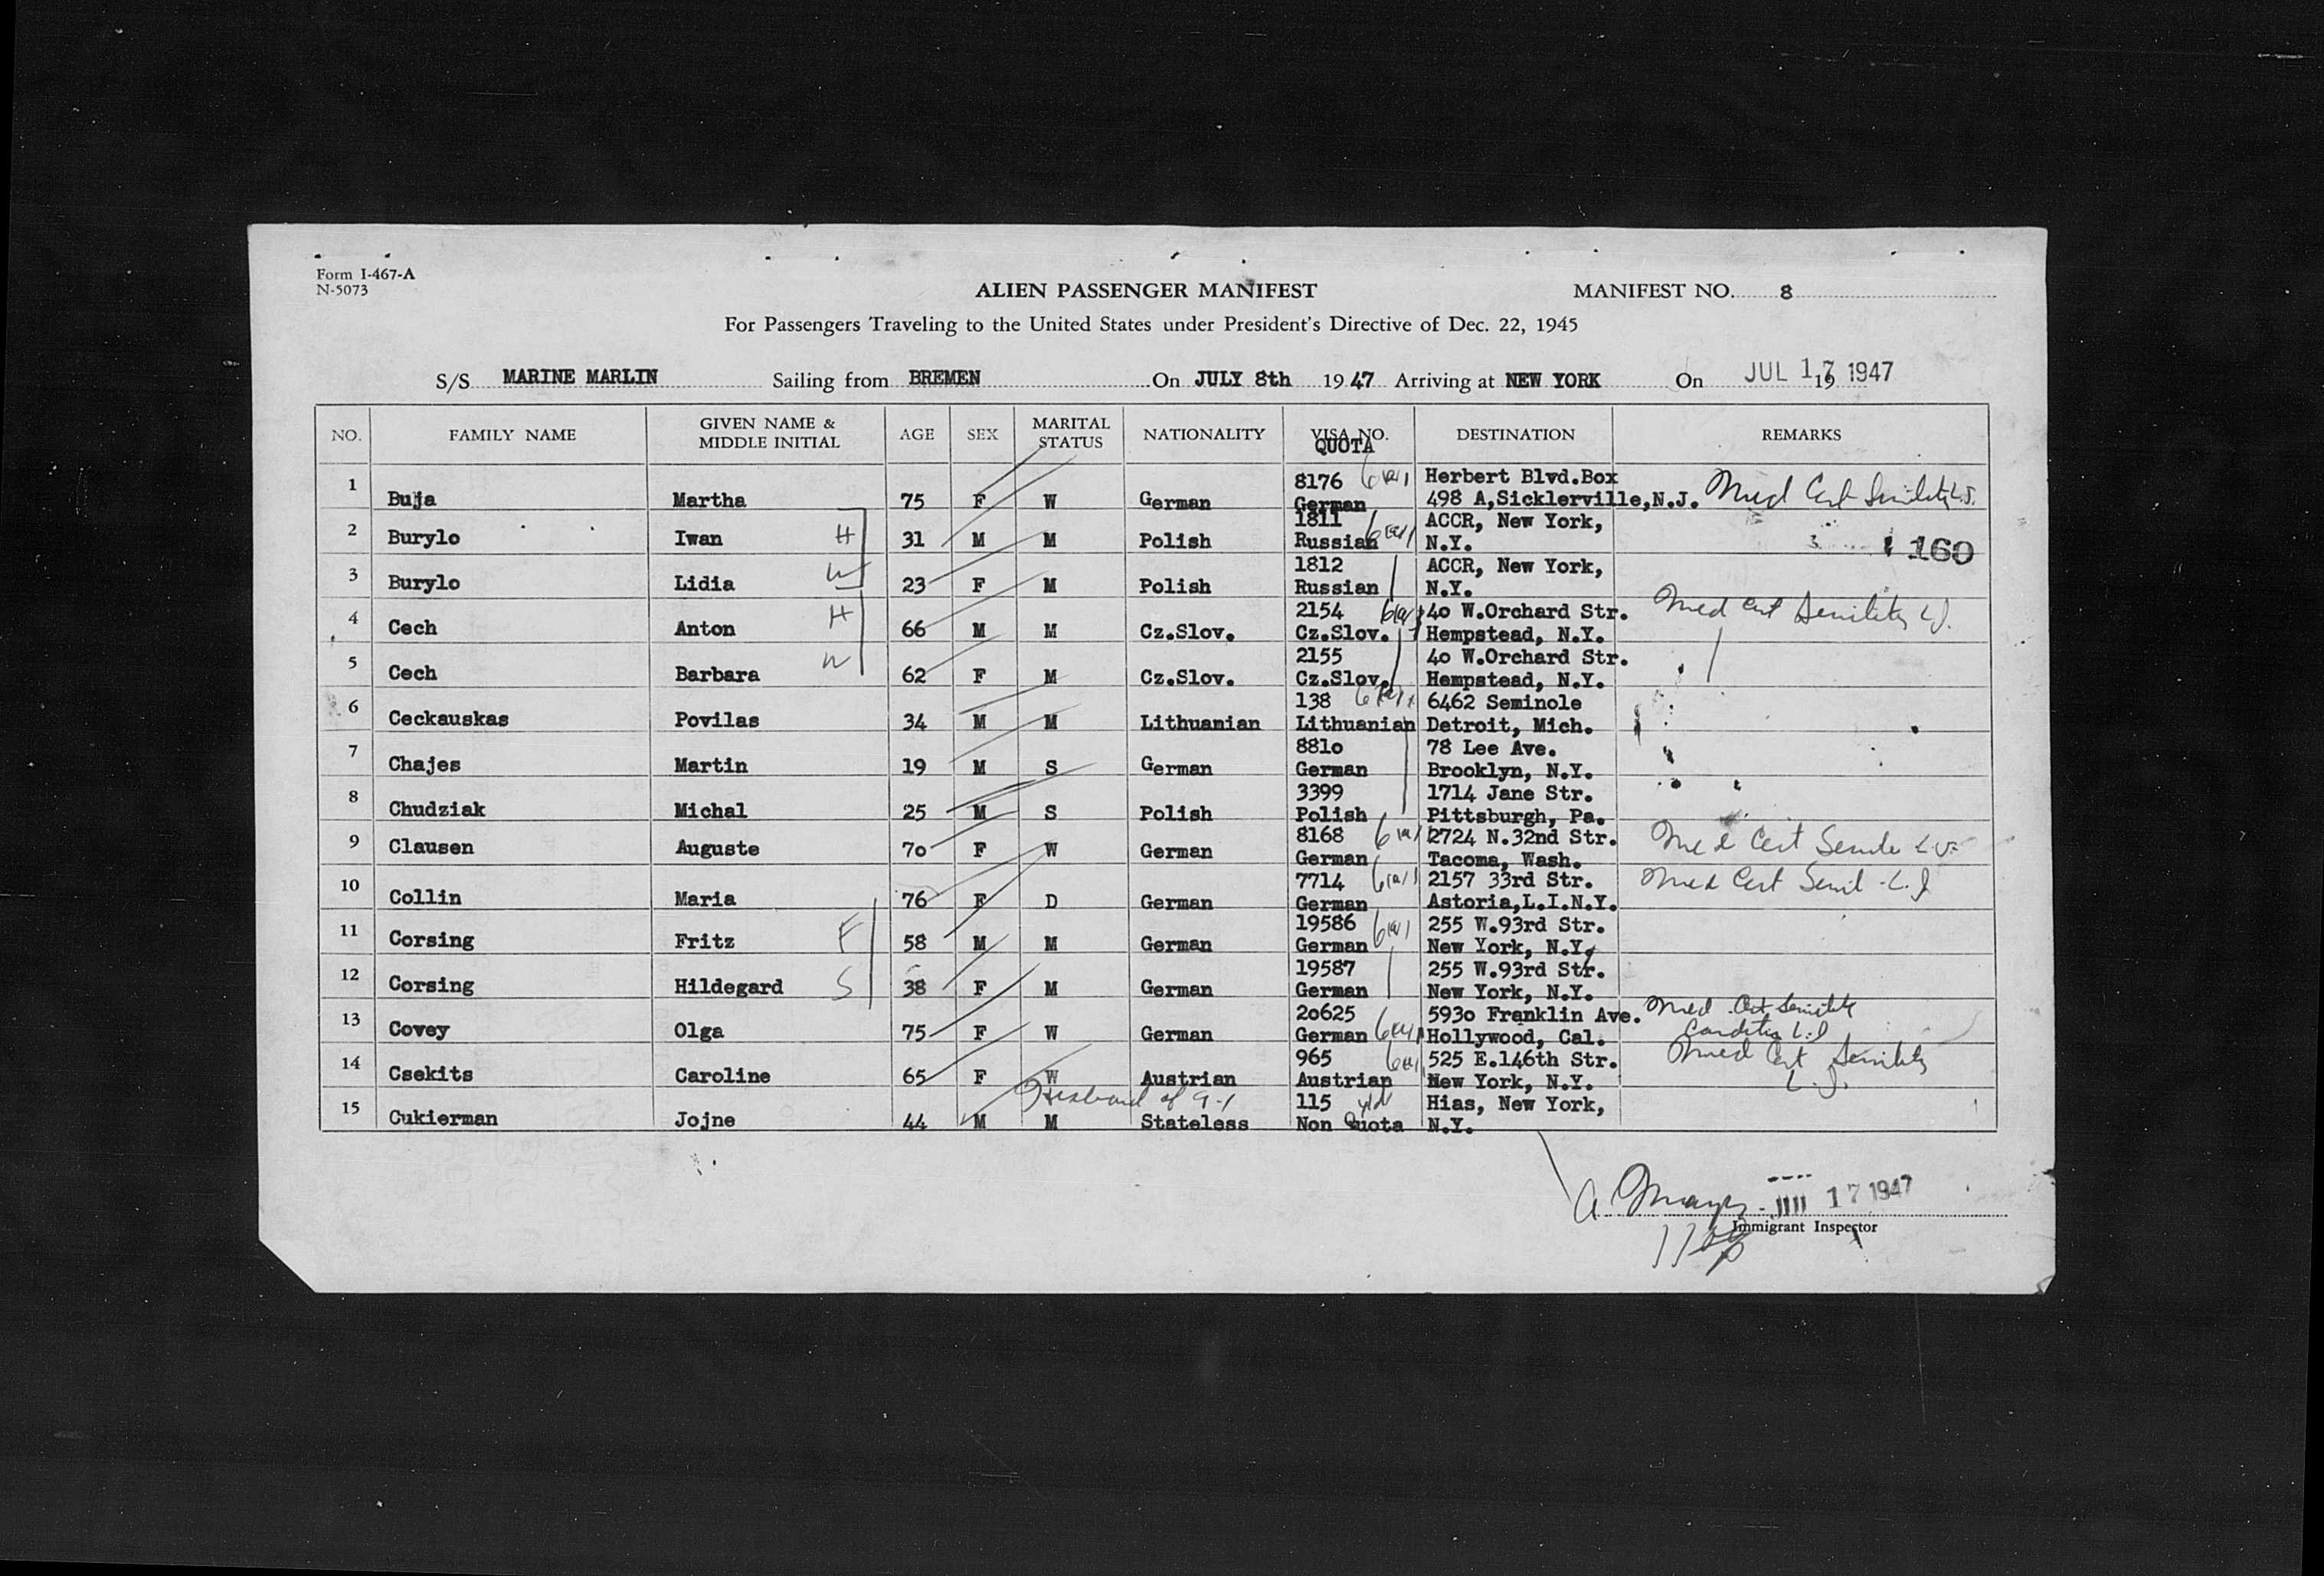 Form I-467-A
N-5073
ALIEN PASSENGER MANIFEST
MANIFEST NO. 8
For Passengers Traveling to the United States under President's Directive of Dec. 22, 1945
S/S MARINE MARLIN Sailing from BREMEN On JULY 8th 1947 Arriving at NEW YORK On JUL 17 1947 19
NO. FAMILY NAME GIVEN NAME & MIDDLE INITIAL AGE SEX MARITAL STATUS NATIONALITY VISA NO. QUOTA DESTINATION REMARKS
8176 Herbert Blvd.Box
1 Buja Martha 75 F W German German 498 A,Sicklerville,N.J. Med Cert Senility L.J.
1811 ACCR, New York,
2 Burylo Iwan H 31 M M Polish Russian N.Y. 160
1812 ACCR, New York,
3 Burylo Lidia W 23 F M Polish Russian N.Y.
2154 40 W.Orchard Str. Med Cert Senility L.J.
4 Cech Anton H 66 M M Cz.Slov. Cz.Slov. Hempstead, N.Y.
2155 40 W.Orchard Str.
5 Cech Barbara W 62 F M Cz.Slov. Cz.Slov. Hempstead, N.Y.
138 6462 Seminole
6 Ceckauskas Povilas 34 M M Lithuanian Lithuanian Detroit, Mich.
8810 78 Lee Ave.
7 Chajes Martin 19 M S German German Brooklyn, N.Y.
3399 1714 Jane Str.
8 Chudziak Michal 25 M S Polish Polish Pittsburgh, Pa.
8168 2724 N.32nd Str. Med Cert
9 Clausen Auguste 70 F W German German Tacoma, Wash.
7714 2157 33rd Str. Med Cert Senil L.J.
10 Collin Maria 76 F D German German Astoria,L.I.N.Y.
19586 255 W.93rd Str.
11 Corsing Fritz F 58 M M German German New York, N.Y.
19587 255 W.93rd Str.
12 Corsing Hildegard S 38 F M German German New York, N.Y.
20625 5930 Franklin Ave. Med Cert Senility
13 Covey Olga 75 F W German German Hollywood, Cal. L.J.
965 525 E.146th Str. Med Cert Senility
14 Csekits Caroline 65 F W Austrian Austrian New York, N.Y. L.J.
Husband of 9-1 115 Hias, New York,
15 Cukierman Jojne 44 M M Stateless Non Quota N.Y.
17 1947
Immigrant Inspector